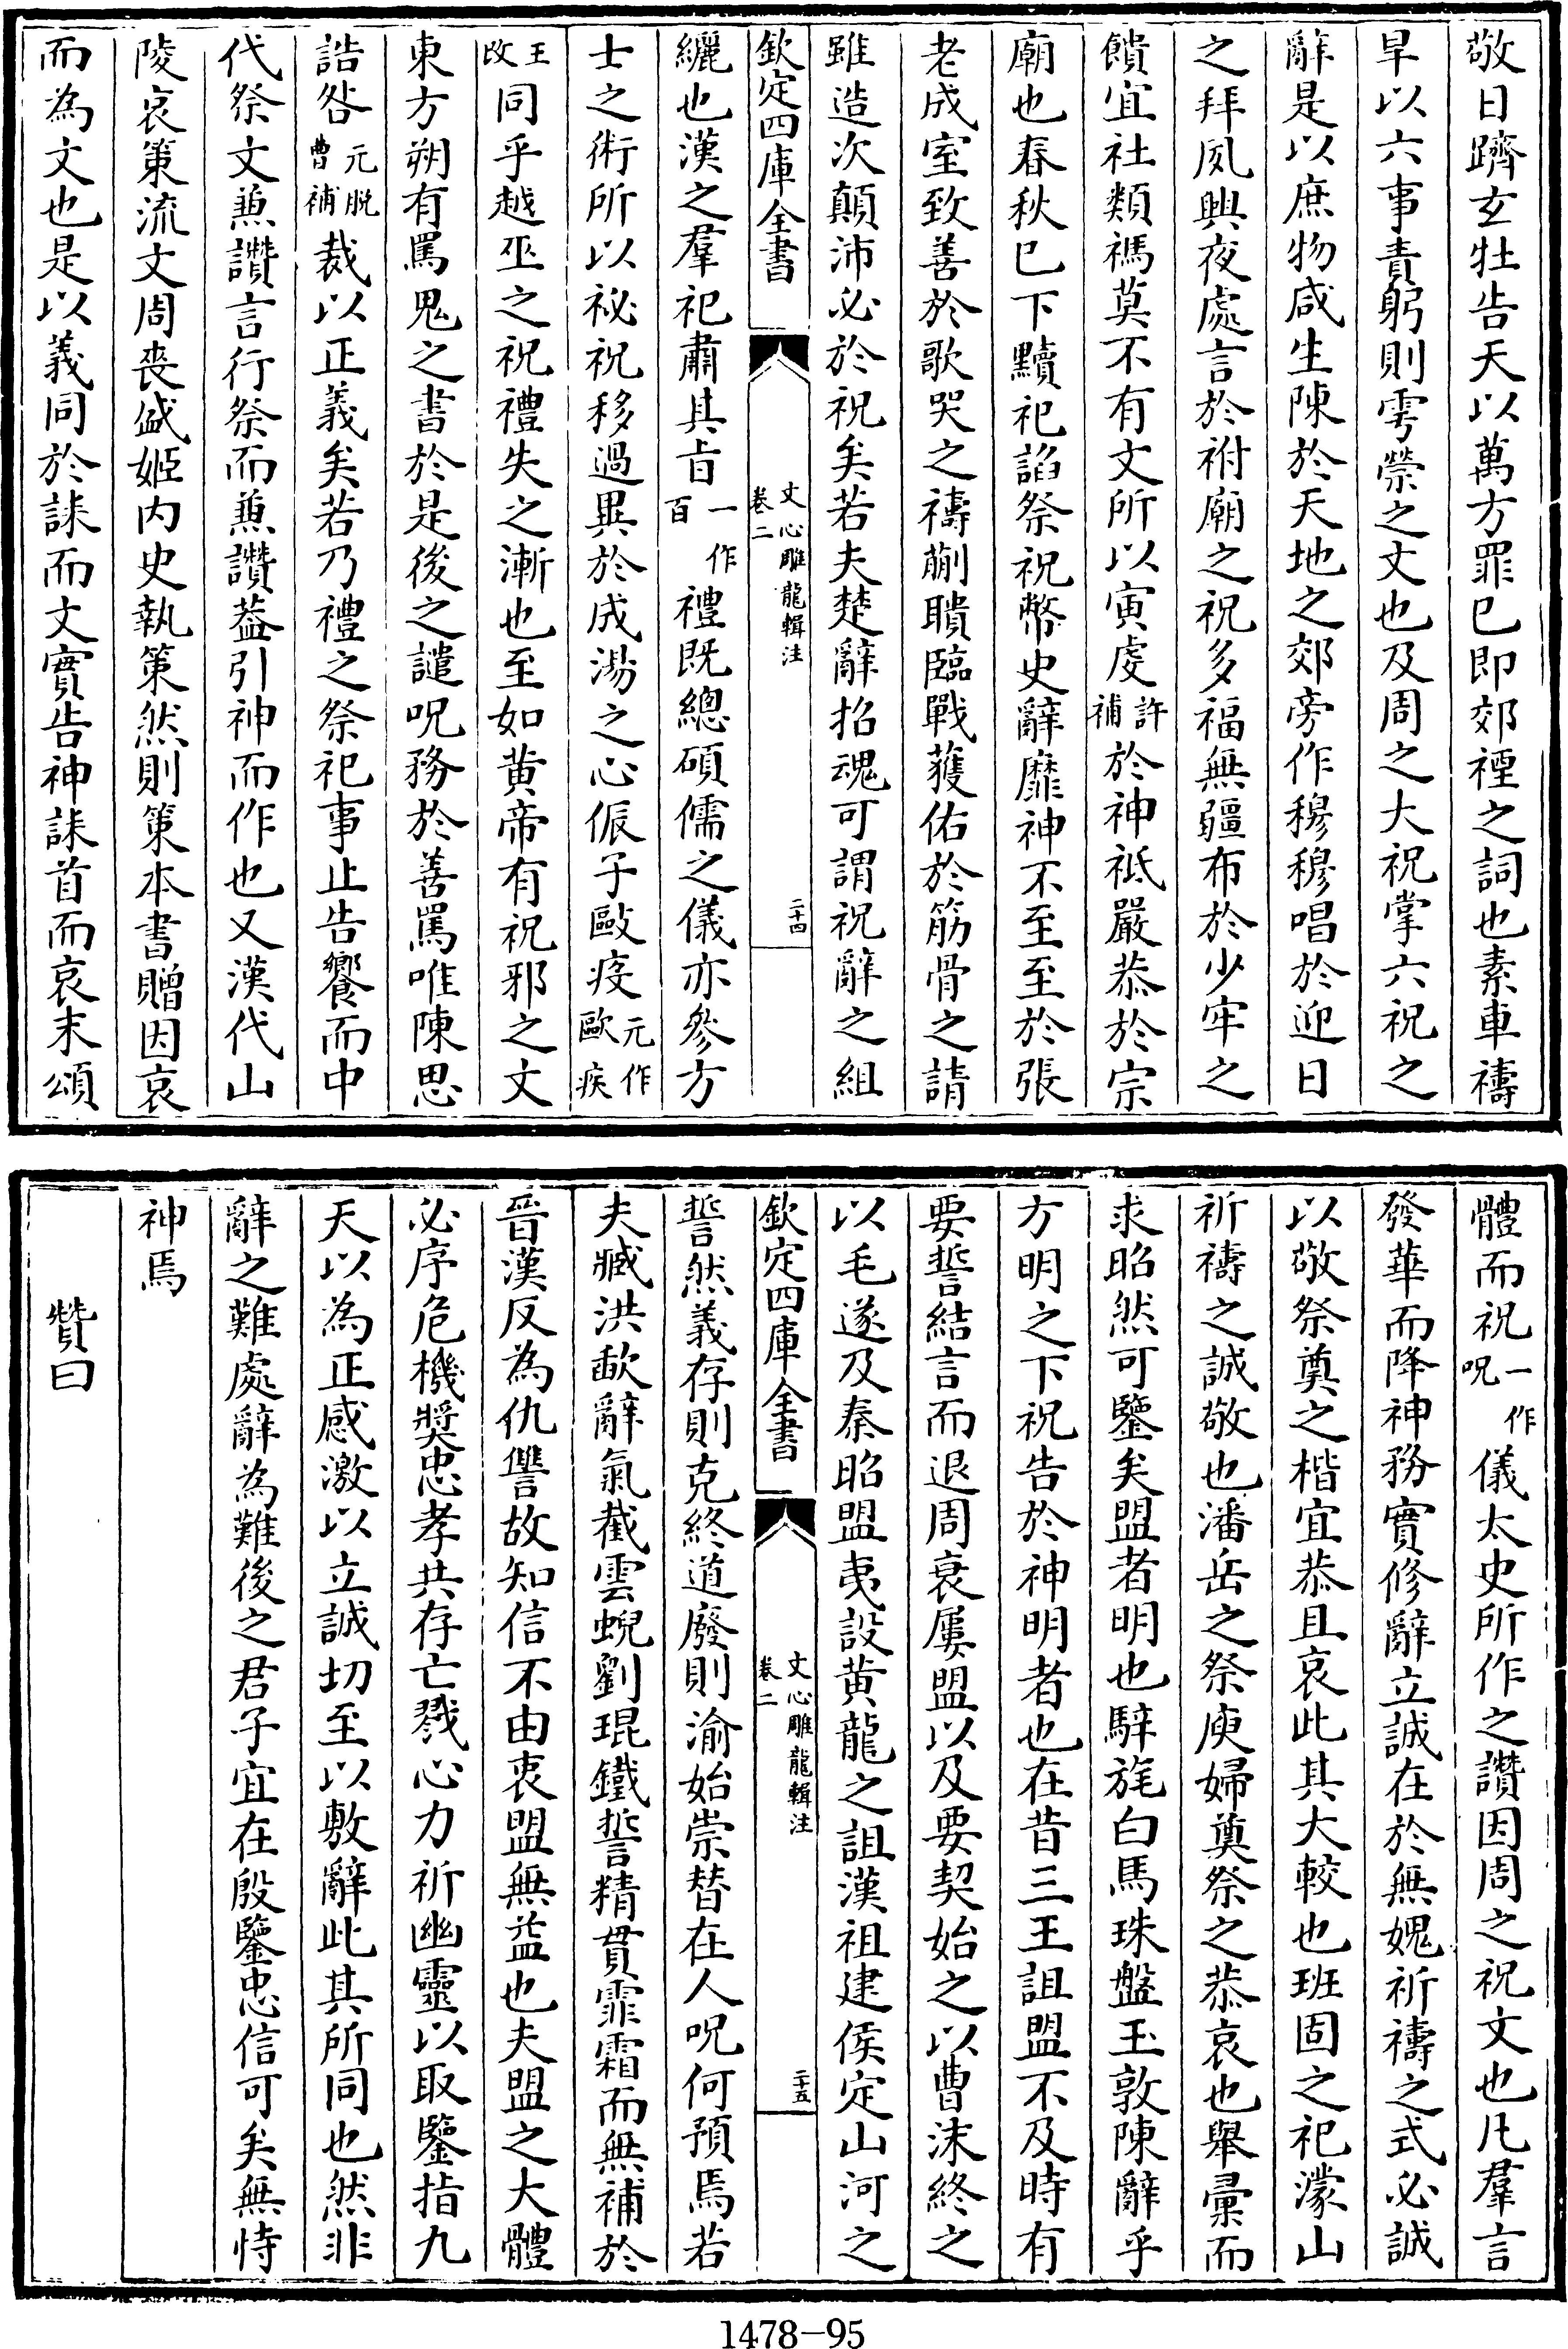 敬日躋玄牡告天以萬方罪己即郊禋之詞也素車禱
旱以六事責躬則雩禜之文也及周之大祝掌六祝之
辭是以庶物咸生陳於天地之郊旁作穆穆唱於迎日
之拜夙興夜處言於祔廟之祝多福無疆布於少牢之
饋宜社類禡莫不有文所以寅虔許補於神祗嚴恭於宗
廟也春秋已下黷祀諂祭祝幣史辭靡神不至至於張
老成室致善於歌哭之禱蒯聵臨戰獲佑於筋骨之請
雖造次顛沛必於祝矣若夫楚辭招魂可謂祝辭之組
欽定四庫全書 文心雕龍輯注 卷二 二十四
纚也漢之羣祀肅其旨一作百禮既總碩儒之儀亦參方
士之術所以祕祝移過異於成湯之心侲子毆疫元作歐疾
王改同乎越巫之祝禮失之漸也至如黄帝有祝邪之文
東方朔有罵鬼之書於是後之譴呪務於善罵唯陳思
誥咎元脱曹補裁以正義矣若乃禮之祭祀事止告饗而中
代祭文兼讚言行祭而兼讚蓋引神而作也又漢代山
陵哀策流文周喪盛姬内史執策然則策本書贈因哀
而為文也是以義同於誄而文實告神誄首而哀末頌
體而祝一作呪儀太史所作之讚因周之祝文也凡羣言
發華而降神務實修辭立誠在於無媿祈禱之式必誠
以敬祭奠之楷宜恭且哀此其大較也班固之祀濛山
祈禱之誠敬也潘岳之祭庾婦奠祭之恭哀也舉彙而
求昭然可鑒矣盟者明也騂旄白馬珠盤玉敦陳辭乎
方明之下祝告於神明者也在昔三王詛盟不及時有
要誓結言而退周衰屢盟以及要契始之以曹沬終之
以毛遂及秦昭盟夷設黄龍之詛漢祖建侯定山河之
欽定四庫全書 文心雕龍輯注 卷二 二十五
誓然義存則克終道廢則渝始崇替在人呪何預焉若
夫臧洪歃辭氣截雲蜺劉琨鐵誓精貫霏霜而無補於
晉漢反為仇讐故知信不由衷盟無益也夫盟之大體
必序危機奬忠孝共存亡戮心力祈幽靈以取鑒指九
天以為正感激以立誠切至以敷辭此其所同也然非
辭之難處辭為難後之君子宜在殷鑒忠信可矣無恃
神焉
贊曰
1478-95